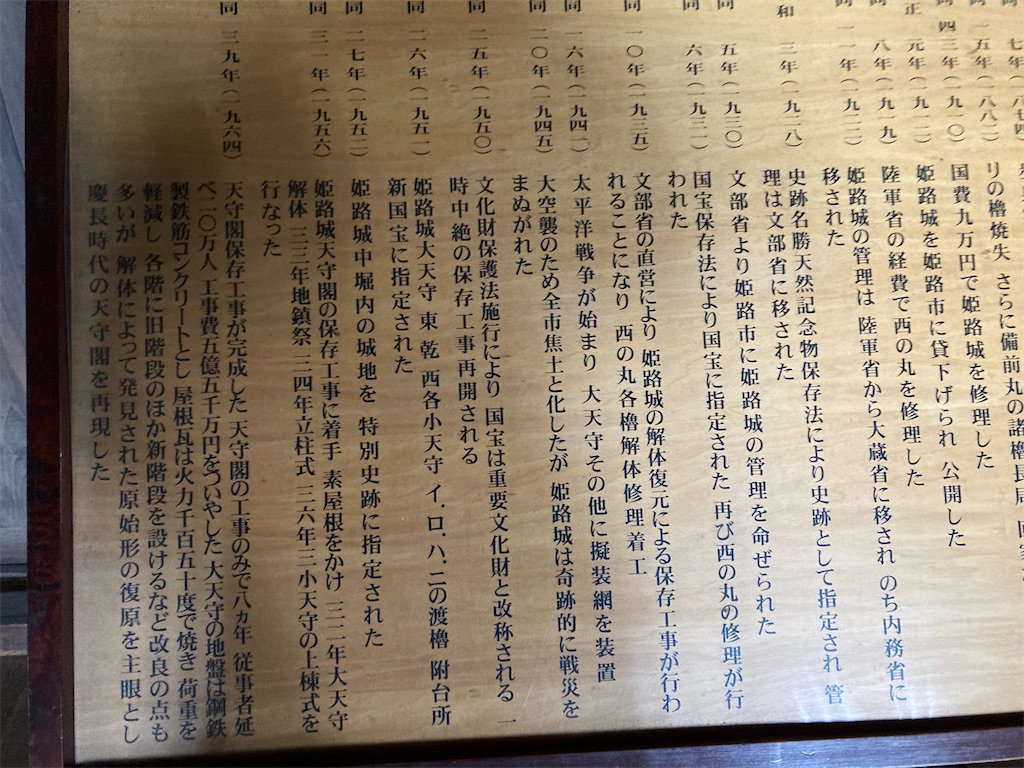 七年(一八七四)
リの櫓焼失 さらに備前丸の諸櫓長局
同 一五年(一八八二)
国費九万円で姫路城を修理した
同 四三年(一九一〇)
姫路城を姫路市に貸下げられ 公開した
正 元年(一九一二)
陸軍省の経費で西の丸を修理した
同 八年(一九一九)
姫路城の管理は 陸軍省から大蔵省に移され のち内務省に
移された
同 一一年(一九二二)
史跡名勝天然記念物保存法により史跡として指定され 管
理は文部省に移された
和 三年(一九二八)
文部省より姫路市に姫路城の管理を命ぜられた
同 五年(一九三〇)
国宝保存法により国宝に指定された 再び西の丸の修理が行
われた
同 六年(一九三一)
文部省の直営により 姫路城の解体復元による保存工事が行わ
れることになり 西の丸各櫓解体修理着工
同 一〇年(一九三五)
太平洋戦争が始まり 大天守その他に擬装網を装置
同 一六年(一九四一)
大空襲のため全市焦土と化したが 姫路城は奇跡的に戦災を
まぬがれた
同 二〇年(一九四五)
文化財保護法施行により 国宝は重要文化財と改称される 一
時中絶の保存工事再開される
同 二五年(一九五〇)
姫路城大天守 東 乾 西各小天守 イ.ロ.ハ.ニの渡櫓 附台所
新国宝に指定された
同 二六年(一九五一)
姫路城中堀内の城地を 特別史跡に指定された
同 二七年(一九五二)
姫路城天守閣の保存工事に着手 素屋根をかけ 三二年大天守
解体 三三年地鎮祭 三四年立柱式 三六年三小天守の上棟式を
行なった
同 三一年(一九五六)
天守閣保存工事が完成した 天守閣の工事のみで八ヵ年 従事者延
べ二〇万人 工事費五億五千万円をついやした 大天守の地盤は鋼鉄
製鉄筋コンクリートとし 屋根瓦は火力千百五十度で焼き 荷重を
軽減し 各階に旧階段のほか新階段を設けるなど改良の点も
多いが 解体によって発見された原始形の復原を主眼とし
慶長時代の天守閣を再現した
同 三九年(一九六四)